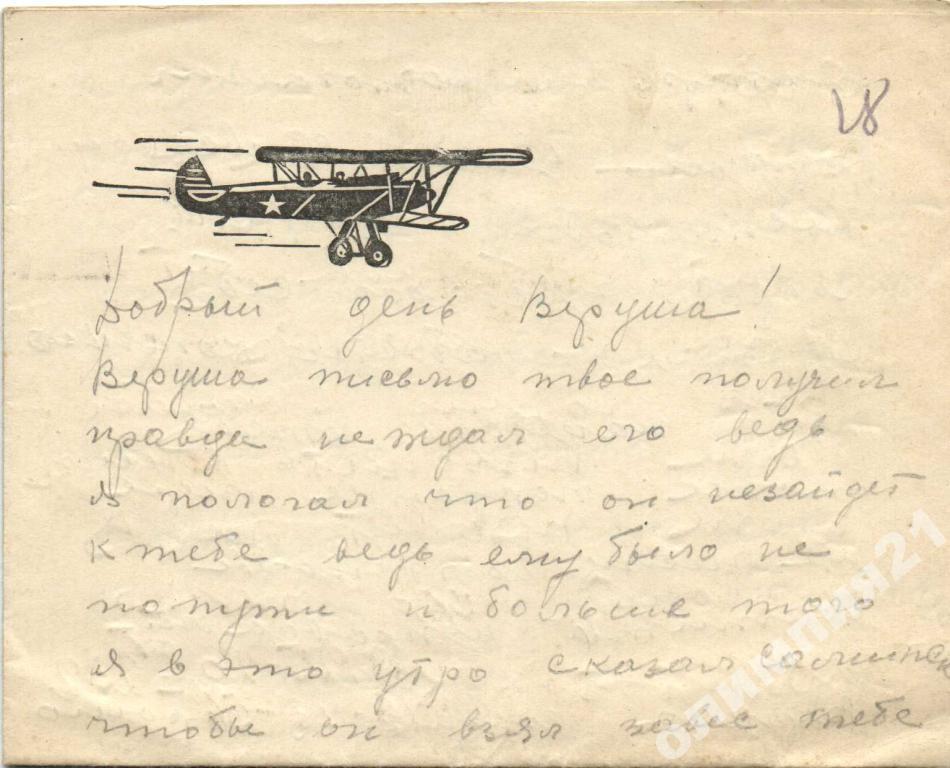 28
Добрый день Веруша!
Веруша письмо твое получил
правда не ждал его ведь
я пологал что он незайдет
к тебе ведь ему было не
по пути и больше того
я в это утро сказал
чтобы он взял тебе
олимпия21